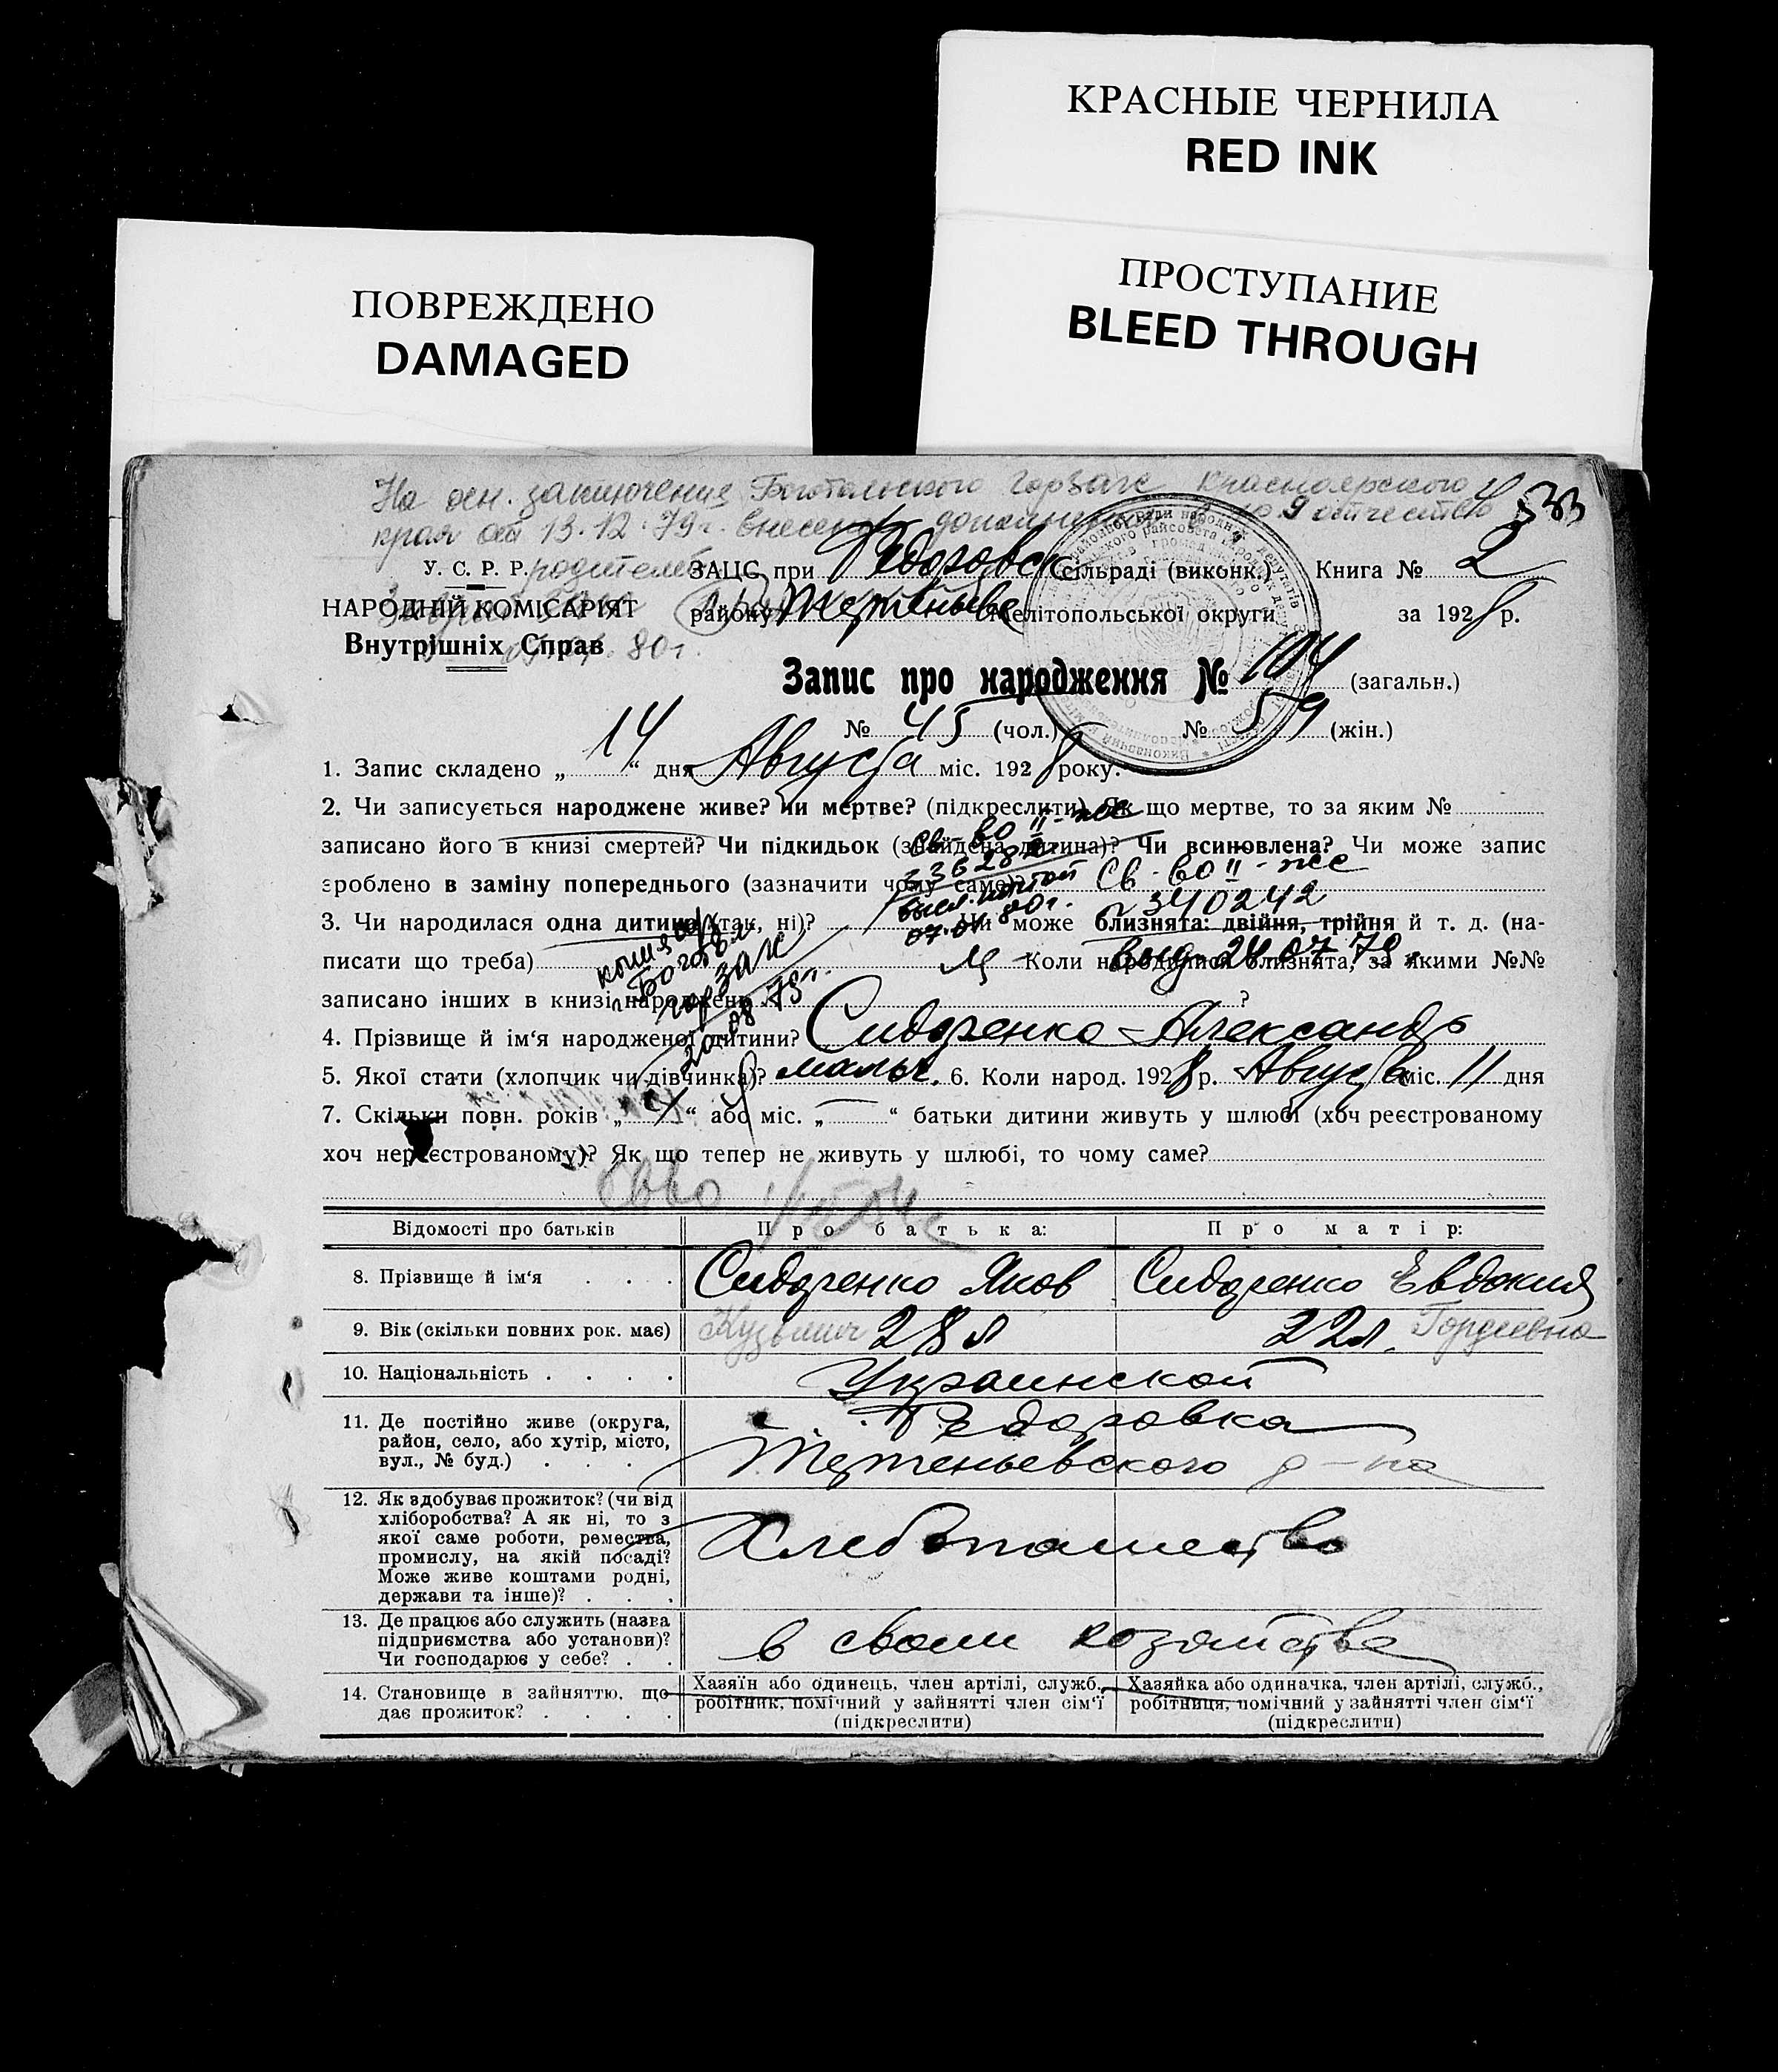 КРАСНЫЕ ЧЕРНИЛА
RED INK
ПОВРЕЖДЕНО
DAMAGED
ПРОСТУПАНИЕ
BLEED THROUGH
На осн. заключения Боготольского горзагс Красноярского
края от 13.12.79г. внесены дополнения отчество
родителей
80г.
У. С. Р. Р.
НАРОДНІЙ КОМІСАРІЯТ
Внутрішніх Справ
ЗАЦС при Федоровск сільраді (виконк.) Книга № 2
району Терпеньевс Мелітопольської округи за 1928 р.
Запис про народження № 104 (загальн.)
№ 45 (чол.) № 59 (жін.)
1. Запис складено „ 14 “ дня Августа міс. 1928 року.
2. Чи записується народжене живе? чи мертве? (підкреслити) Як що мертве, то за яким №
записано його в книзі смертей? Чи підкидьок (знайдена дитина)? Чи всиновлена? Чи може запис
зроблено в заміну попереднього (зазначити чому саме)?
Св-во II-ЖС
340242
выд. 24.07.79
07.01.80г.
3. Чи народилася одна дитина (так, ні)? Чи може близнята: двійня, трійня й т. д. (на-
писати що треба) Коли народилися близнята, за якими №№
записано інших в книзі народжень ?
копия
Боготол
горзагс
20.08.75г.
4. Прізвище й ім‘я народженої дитини? Сидоренко Александр
5. Якої стати (хлопчик чи дівчинка)? мальч. 6. Коли народ. 1928 р. Августа міс. 11 дня
7. Скільки повн. років „ 4 “ або міс. „ — “ батьки дитини живуть у шлюбі (хоч реєстрованому
хоч нереєстрованому)? Як що тепер не живуть у шлюбі, то чому саме?
Відомості про батьків Про батька: Про матір:
8. Прізвище й ім‘я Сидоренко Яков Сидоренко Евдокия
9. Вік (скільки повних рок. має) Кузьмич 28 л 22 л. Гордеевна
10. Національність Украинской
11. Де постійно живе (округа,
район, село, або хутір, місто,
вул., № буд.)
с. Федоровка
Терпеньевского р-на
12. Як здобуває прожиток? (чи від
хліборобства? А як ні, то з
якої саме роботи, ремества,
промислу, на якій посаді?
Може живе коштами родні,
держави та інше)?
Хлебопашество
13. Де працює або служить (назва
підприємства або установи)?
Чи господарює у себе?
в своем хозяйстве
14. Становище в зайняттю, що
дає прожиток?
Хазяїн або одинець, член артілі, служб.,
робітник, помічний у зайнятті член сім‘ї
(підкреслити)
Хазяйка або одиначка, член артілі, служб.,
робітниця, помічний у зайнятті член сім‘ї
(підкреслити)